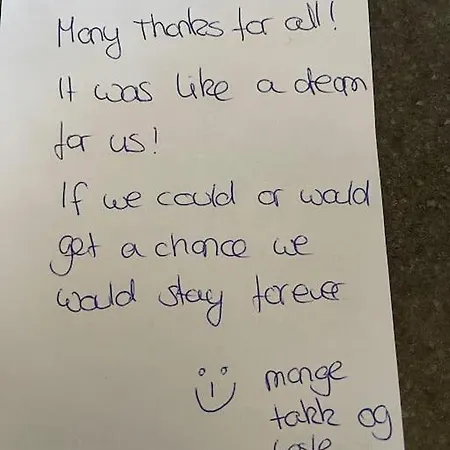 Many thanks for all!
It was like a dream
for us!
If we could or would
get a chance we
would stay forever
mange
takk og